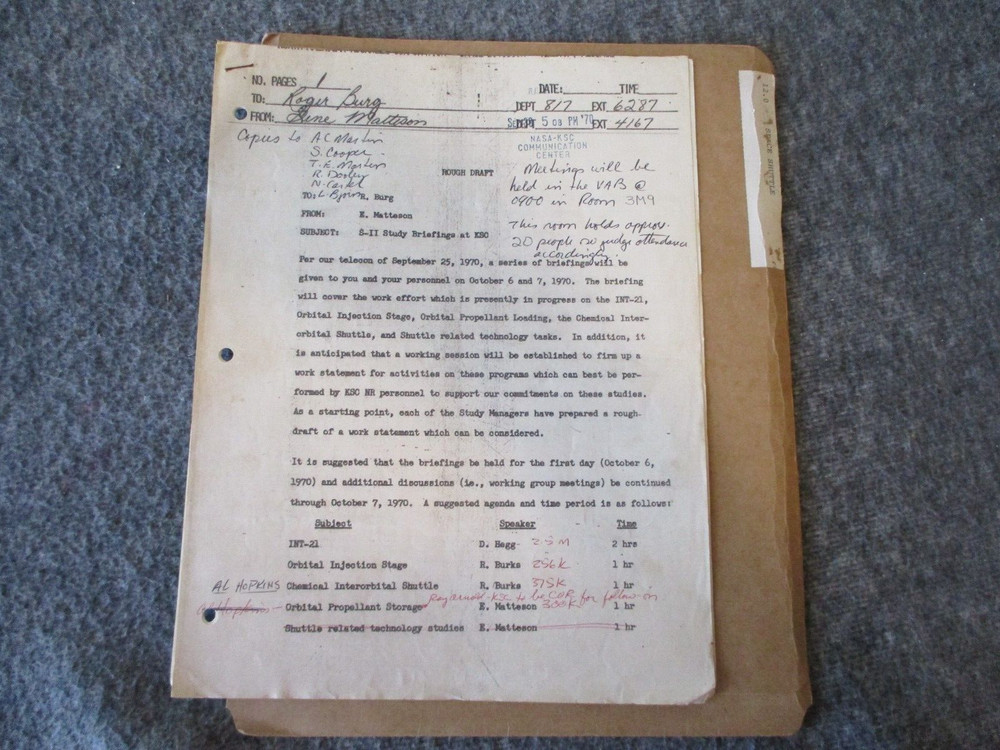 NO. PAGES 1 DATE: TIME
TO: Roger Burg DEPT 817 EXT 6287
FROM: Gene Matteson 5 03 PM '70 EXT 4167
NASA-KSC
COMMUNICATION
CENTER
Copies to AC Martin
S. Cooper
T. E. Martin
R.
N.
L.
Meetings will be
held in the VAB @
0900 in Room 3M9
This room holds approx.
20 people so judge attendance
accordingly.
ROUGH DRAFT
TO: R. Burg
FROM: E. Matteson
SUBJECT: S-II Study Briefings at KSC
Per our telecon of September 25, 1970, a series of briefings will be
given to you and your personnel on October 6 and 7, 1970. The briefing
will cover the work effort which is presently in progress on the INT-21,
Orbital Injection Stage, Orbital Propellant Loading, the Chemical Inter-
orbital Shuttle, and Shuttle related technology tasks. In addition, it
is anticipated that a working session will be established to firm up a
work statement for activities on these programs which can best be per-
formed by KSC NR personnel to support our commitments on these studies.
As a starting point, each of the Study Managers have prepared a rough
draft of a work statement which can be considered.
It is suggested that the briefings be held for the first day (October 6,
1970) and additional discussions (ie., working group meetings) be continued
through October 7, 1970. A suggested agenda and time period is as follows:
Subject Speaker Time
INT-21 D. Hagg 2.5 M 2 hrs
Orbital Injection Stage R. Burks 256K 1 hr
AL HOPKINS Chemical Interorbital Shuttle R. Burks 375K 1 hr
KSC to be COR for follow-on
Orbital Propellant Storage E. Matteson 300K 1 hr
Shuttle related technology studies E. Matteson 1 hr
SPACE SHUTTLE